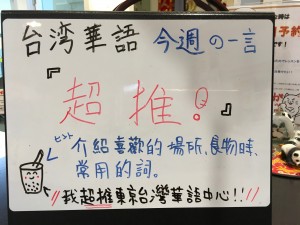 台湾華語 今週の一言
『超推!』
ヒント
介紹喜歡的場所、食物時、
常用的詞。
"我超推東京台灣華語中心!!"